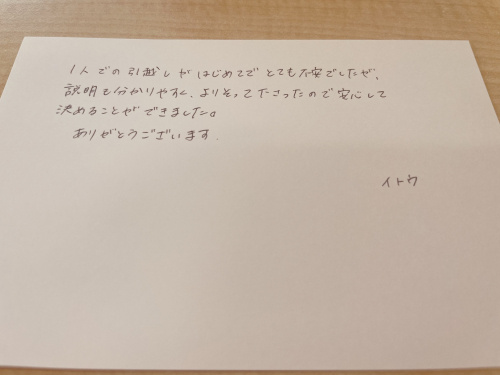 1人での引越しがはじめてでとても不安でしたが、
説明も分かりやすく、よりそって下さったので安心して
決めることができました。
ありがとうございます.
イトウ